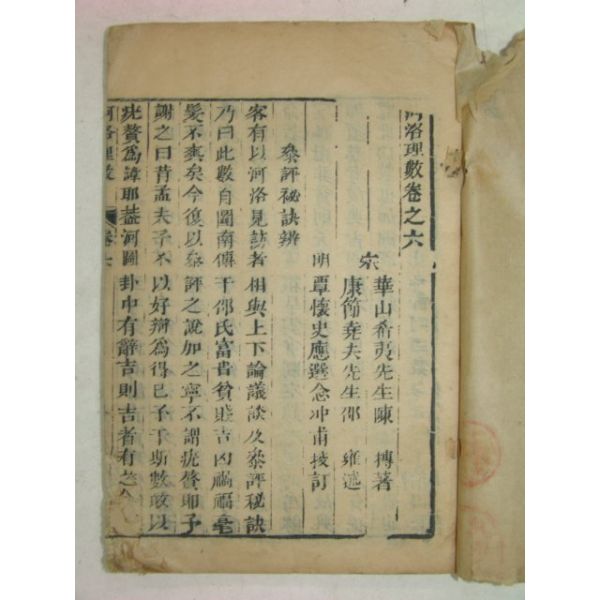 河洛理數卷之六
宋 華山希夷先生陳 摶著
康節堯夫先生邵 雍述
明 覃懷史應選念冲甫挍訂
叅評秘訣辨
客有以河洛見訪者相與上下論議談及叅評秘訣
乃曰此數自聞南傳于邵氏富貴貧賤吉凶禍福毫
髮不爽矣今復以叅評之說加之寧不謂疣贅耶予
謝之曰昔孟夫子不以好辯為得已予于斯數敢以
疣贅為諱耶葢河圖卦中有辭吉則吉者有之
河洛理數 卷